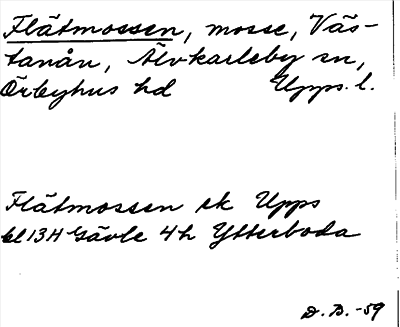 Flätmossen, mosse, Väs-
tanån, Älvkarleby sn,
Örbyhus hd Upps. l.
Flätmossen ek Upps
bl 13H Gävle 4h Ytterboda
D. B. -59